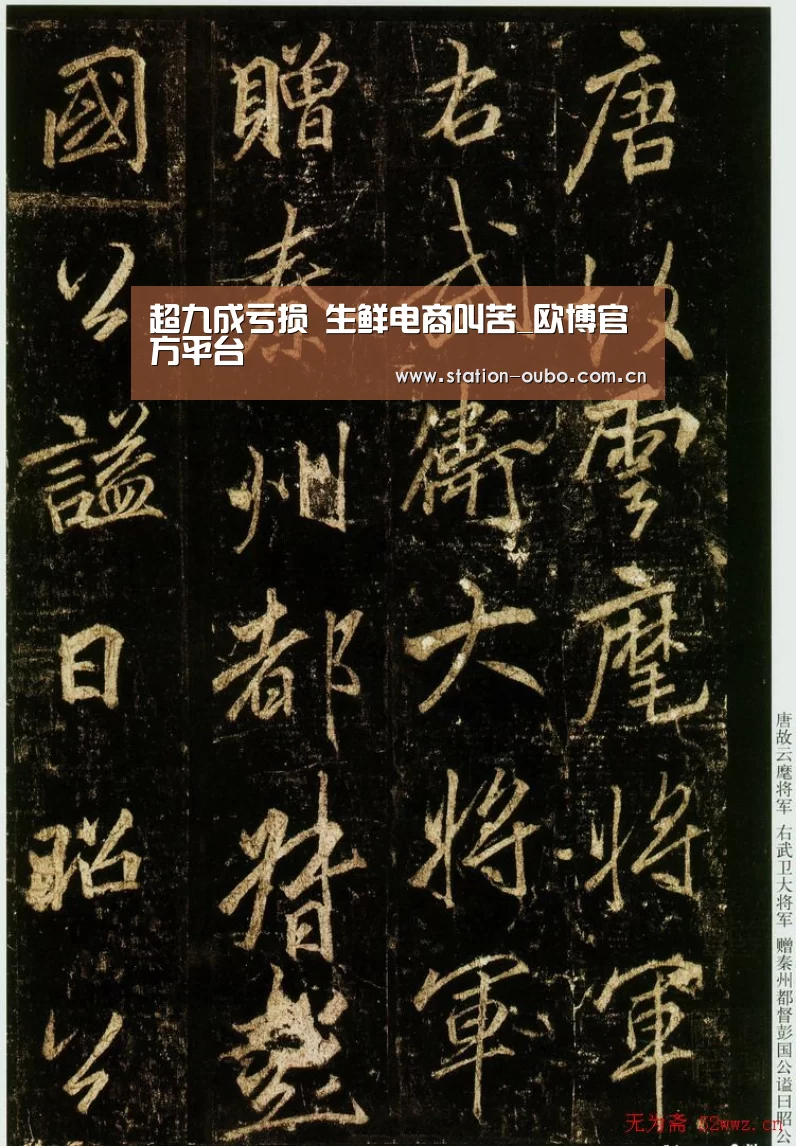 唐故雲麾將軍
右武衛大將軍
贈秦州都督彭
國公謚曰昭公
超九成亏损 生鲜电商叫苦_欧博官
方平台
www.station-oubo.com.cn
唐故云麾将军 右武卫大将军 赠秦州都督彭国公谥曰昭公
无为斋 52wwz.cn